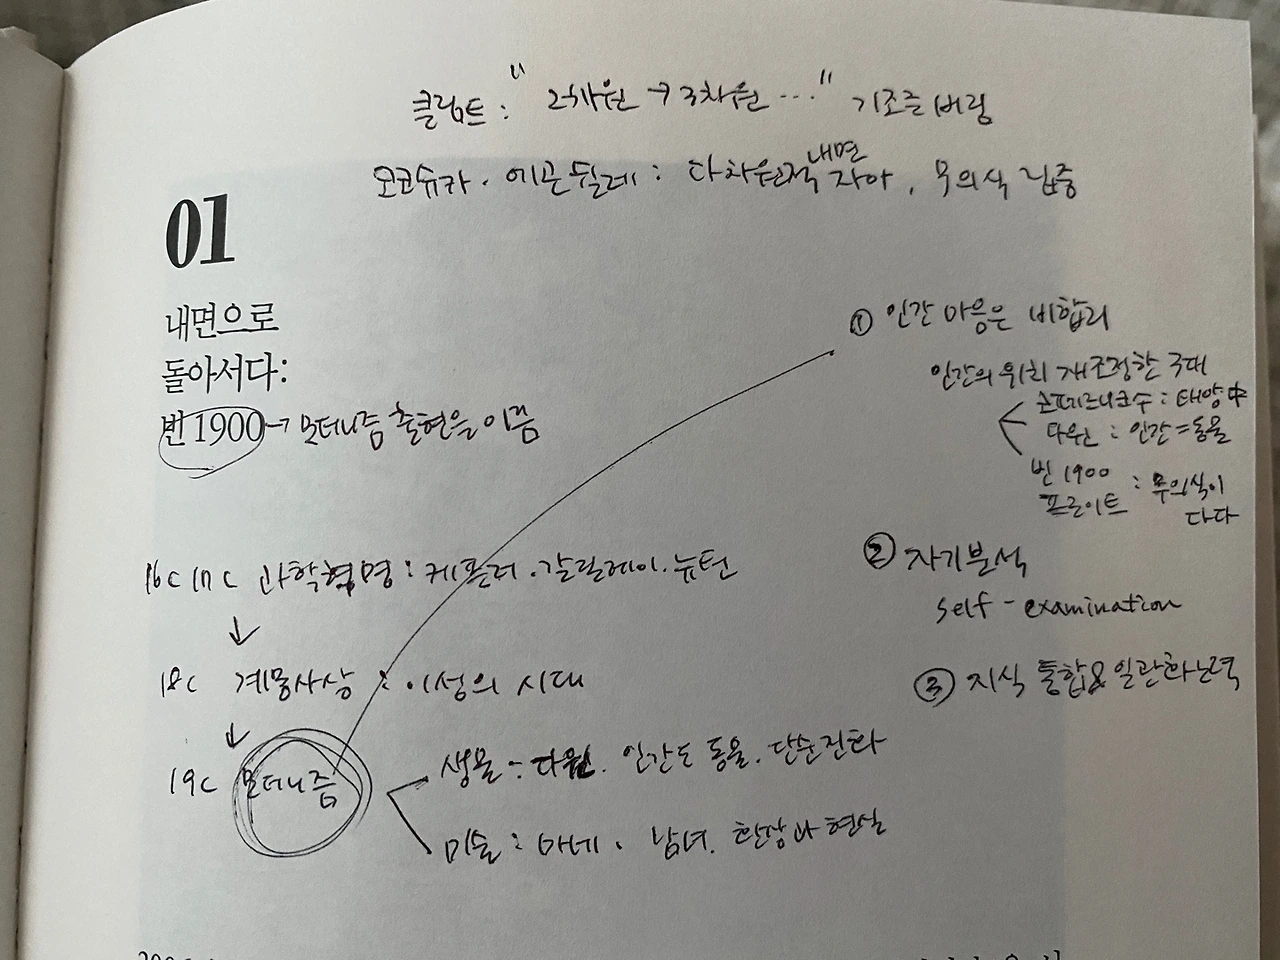 클림트 : "2차원 → 3차원 ..." 기조를 버림
오코슈카 · 에곤 쉴레 : 다차원적 내면 자아, 무의식 집중
01
내면으로
돌아서다:
빈 1900 → 모더니즘 출현을 이끔
① 인간 마음은 비합리
인간의 위치 재조정한 국대
코페르니쿠스 : 태양 中
다윈 : 인간 = 동물
빈 1900
프로이트 : 무의식이
다다
② 자기분석
self - examination
③ 지식 통합 & 일관화 노력
16c 17c 과학혁명 : 케플러 . 갈릴레이 . 뉴턴
↓
18c 계몽사상 : 이성의 시대
↓
19c 모더니즘
생물 : 다윈. 인간도 동물. 단순진화
미술 : 마네. 남녀. 환상과 현실